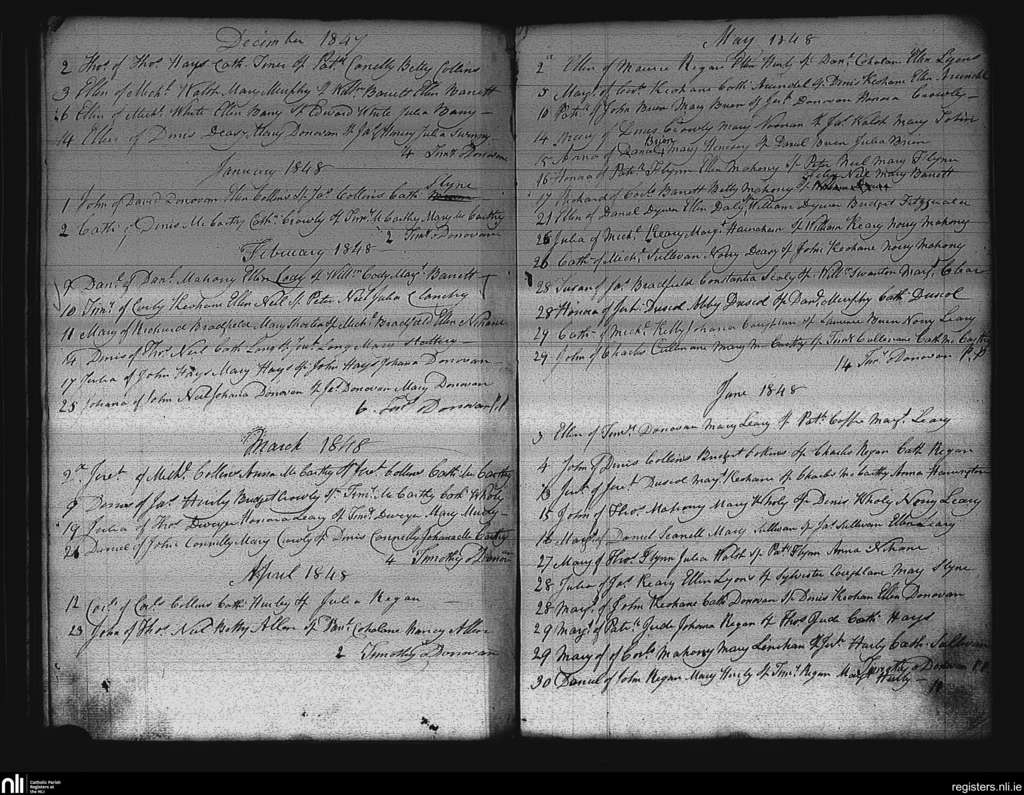 December 1847
2 Thos. of Thos. Hays Cath. Tiner Sp Patk. Conelly Betty Collins
3 Ellen of Michl. Walsh Mary Murphy Sp Robt. Barrett Ellen Barrett
6 Ellen of Michl. White Ellen Barry Sp Edward White Julia Barry
14 Ellen of Denis Deasy Mary Donovan Sp Jas. Harney Julia Sweeny
4 Timy. Donovan
January 1848
1 John of David Donovan Ellen Collins Sp Jas. Collins Cath. Slyne
2 Cath. of Denis McCarthy Cath. Crowly Sp Timy. McCarthy Mary McCarthy
2 Timy. Donovan
February 1848
9 Danl. of Danl. Mahony Ellen Cody Sp Willm. Cody Mary Barrett
10 Timy. of Corly Keohane Ellen Neil Sp Peter Neil Julia Clanchy
11 Mary of Richard Bradfield Mary Sp Michl. Bradfield Ellen Nihane
14 Denis of Thos. Neil Cath. Long Sp Long Mary Slattery
17 Julia of John Hays Mary Hays Sp John Hays Johana Donovan
25 Johana of John Neil Johana Donovan Sp Jas. Donovan Mary Donovan
6 Timy. Donovan P.P.
March 1848
9 Jert. of Michl. Collins Anna McCarthy Sp Jert. Collins Cath. McCarthy
9 Denis of Jas. Hurly Budget Crowly Sp Timy. McCarthy Cath. Wholy
19 Julia of Thos. Dwyer Honora Leary Sp Timy. Dwyer Mary Murly
26 Daniel of John Connelly Mary Crowly Sp Denis Connelly Johana McCarthy
4 Timothy O Donovan
April 1848
12 Corl. of Corls. Collins Cath. Hurly Sp Julia Regan
23 John of Thos. Neil Betty Allen Sp Danl. Coholane Nancy Allen
2 Timothy O Donovan
May 1848
2 Ellen of Maurice Regan Ellen Hurly Sp Danl. Coholan Ellen Lyons
5 Mary of Cors. Keohane Cath. Arundel Sp Denis Keohane Ellen Arundel
10 Patk. of John Buen Mary Buen Sp Jert. Donovan Honora Crowly
14 Mary of Denis Crowly Mary Noonan Sp Jas. Walsh Mary Tobin
15 Anna of Daniel Buen Mary Hendley Sp Danal Buen Julia Buen
16 Honora of Patk. Flynn Ellen Mahony Sp Peter Neil Mary Flynn
17 Richard of Corls. Barrett Betty Mahony Sp Felix Neil Mary Barrett
21 Ellen of Danal Dywer Ellen Daly Sp William Dywer Budget Fitzgerald
26 Julia of Michl. Keary Margt. Hanrahan Sp William Keary Nony Mahony
26 Cath. of Michl. Sullivan Nony Deasy Sp John Keohane Nony Mahony
28 Susan of Jas. Bradfield Constantia Sealy Sp Willm. Swanton Margt. Clear
28 Honora of Jert. Duscol Abby Duscol Sp Danl. Murphy Cath. Duscol
29 Cath. of Michl. Kelly Johana Coughlan Sp Buen Nony Leary
29 John of Charles Cullinane Mary McCarthy Sp Timy. Cullinane Cath. McCarthy
14 Timy. Donovan P.P.
June 1848
3 Ellen of Timy. Donovan Mary Leary Sp Patk. Coffee Margt. Leary
4 John of Denis Collins Budget Collins Sp Charles Regan Cath. Regan
13 Jert. of Jert. Duscol Margt. Keohane Sp Charles McCarthy Anna Harrington
15 John of Thos. Mahony Mary Wholy Sp Denis Wholy Nony Leary
16 Margt. of Daniel Scanell Mary Sullivan Sp Jas. Sullivan Ellen Leary
27 Mary of Thos. Flynn Julia Walsh Sp Patk. Flynn Anna Nihane
28 Julia of Jas. Keary Ellen Lyons Sp Sylvester Coughlane Mary Slyne
28 Margt. of John Keohane Cath. Donovan Sp Denis Keohan Ellen Donovan
29 Margt. of Patk. Jude Johana Regan Sp Thos Jude Cath. Hays
29 Mary of Corls. Mahony Mary Linehan Sp Jert. Hurly Cath. Sullivan
30 Danial of John Regan Mary Hurly Sp Timy. Regan Margt. Hurly
Timothy O Donovan P.P.
11
nli
Catholic Parish
Registers at
the NLI
registers.nli.ie